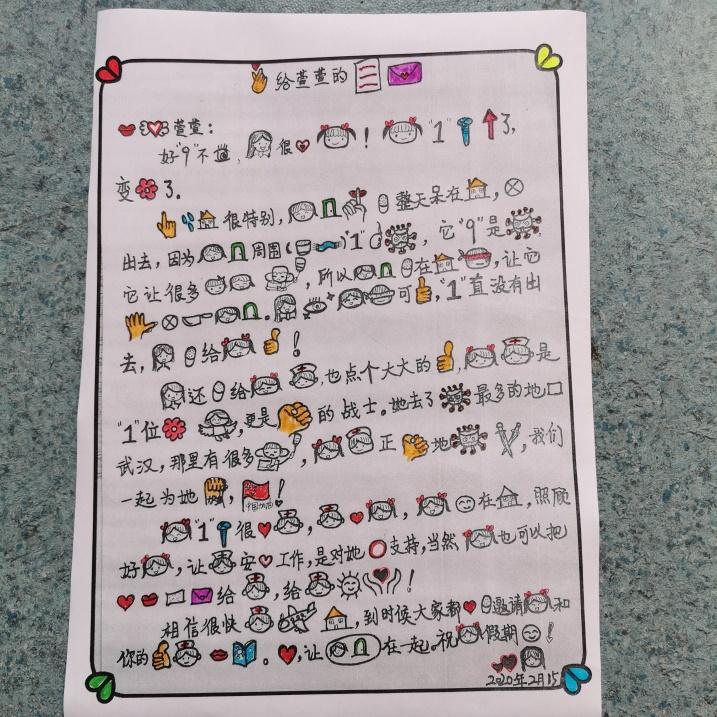 给萱萱的
萱萱:
好"9"不 , 很 ! "1" 3,
变 3.
很特别, 整天呆在 ,
出去,因为 周围( )"1" , 它"9"是
它让很多 , 所以 在 ,让它
可 ,"1"直没有出
去, 给 !
还 给 ,也点个大大的 , 是
"1"位 ,更是 的战士。她去了 最多的地口
武汉,那里有很多 , 正 地 ,我们
一起为她 , 中国加油 !
"1" 很 , , 在 ,照顾
好 ,让 安 工作,是对她 支持,当然 也可以把
给 ,给 !
相信很快 ,到时候大家都 邀请 和
你的 。 ,让 在一起。祝 假期 !
2020年2月15